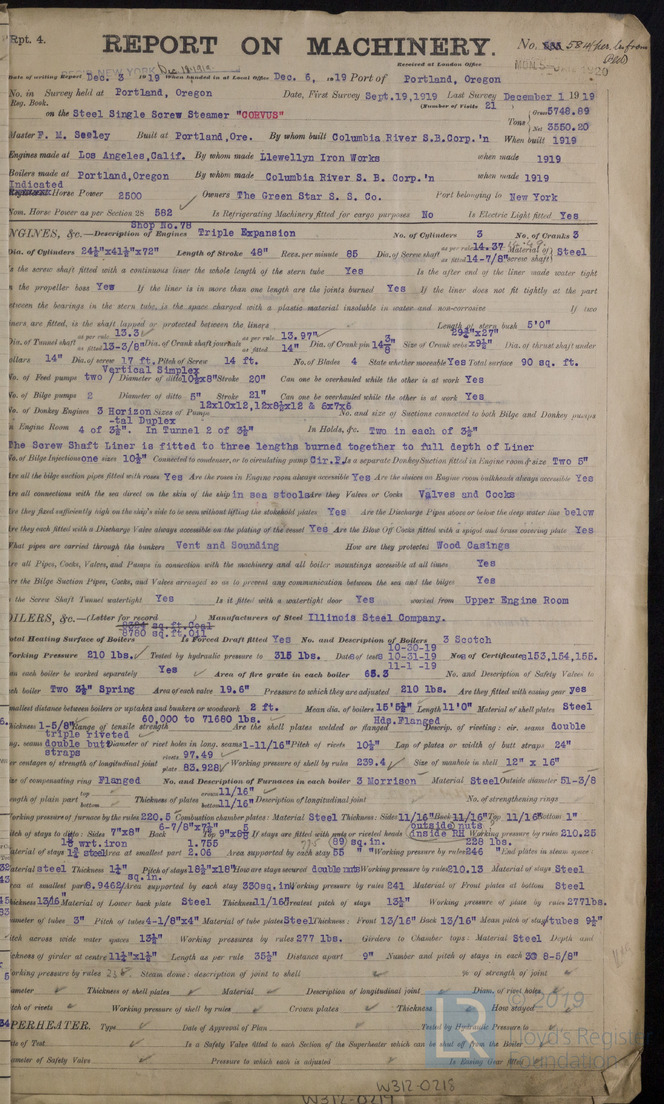 Rpt. 4.
REPORT ON MACHINERY.
No.
Received at London Office
Date of writing Report Dec. 3 1919 When handed in at Local Office Dec. 6, 1919 Port of Portland, Oregon
No. in Survey held at Portland, Oregon Date, First Survey Sept.19,1919 Last Survey December 1 1919
Reg. Book.
(Number of Visits 21
on the Steel Single Screw Steamer "CORVUS" Tons Gross 5748.89
Net 3550.20
Master F. M. Seeley Built at Portland,Ore. By whom built Columbia River S.B.Corp.'n When built 1919
Engines made at Los Angeles,Calif. By whom made Llewellyn Iron Works when made 1919
Boilers made at Portland,Oregon By whom made Columbia River S. B. Corp.'n when made 1919
Indicated
Registered Horse Power 2500 Owners The Green Star S. S. Co. Port belonging to New York
Nom. Horse Power as per Section 28 582 Is Refrigerating Machinery fitted for cargo purposes No Is Electric Light fitted Yes
Shop No.78
NGINES, &c.—Description of Engines Triple Expansion No. of Cylinders 3 No. of Cranks 3
Dia. of Cylinders 24½"x41½"x72" Length of Stroke 48" Revs. per minute 85 Dia. of Screw shaft as per rule 14.37 as fitted 14-7/8" Material of screw shaft Steel
Is the screw shaft fitted with a continuous liner the whole length of the stern tube Yes Is the after end of the liner made water tight
in the propeller boss Yes If the liner is in more than one length are the joints burned Yes If the liner does not fit tightly at the part
between the bearings in the stern tube, is the space charged with a plastic material insoluble in water and non-corrosive If two
liners are fitted, is the shaft lapped or protected between the liners Length of stern bush 5'0"
Dia. of Tunnel shaft as per rule 13.3 as fitted 13-3/8" Dia. of Crank shaft journals as per rule 13.97" as fitted 14" Dia. of Crank pin Size of Crank webs 29½"x27" x9½" Dia. of thrust shaft under
collars 14" Dia. of screw 17 ft. Pitch of Screw 14 ft. No. of Blades 4 State whether moveable Yes Total surface 90 sq. ft.
Vertical Simplex
No. of Feed pumps two Diameter of ditto 10½x8" Stroke 20" Can one be overhauled while the other is at work Yes
No. of Bilge pumps 2 Diameter of ditto 5" Stroke 21" Can one be overhauled while the other is at work Yes
No. of Donkey Engines 3 Horizon-tal Duplex Sizes of Pumps 12x10x12,12x8½x12 & 6x7x6 No. and size of Suctions connected to both Bilge and Donkey pumps
in Engine Room 4 of 3½". In Tunnel 2 of 3½" In Holds, &c. Two in each of 3½"
The Screw Shaft Liner is fitted to three lengths burned together to full depth of Liner
No. of Bilge Injections one sizes 10½" Connected to condenser, or to circulating pump Cir.P. Is a separate Donkey Suction fitted in Engine room & size Two 5"
Are all the bilge suction pipes fitted with roses Yes Are the roses in Engine room always accessible Yes Are the sluices on Engine room bulkheads always accessible Yes
Are all connections with the sea direct on the skin of the ship in sea stools Are they Valves or Cocks Valves and Cocks
Are they fixed sufficiently high on the ship's side to be seen without lifting the stokehold plates Yes Are the Discharge Pipes above or below the deep water line below
Are they each fitted with a Discharge Valve always accessible on the plating of the vessel Yes Are the Blow Off Cocks fitted with a spigot and brass covering plate Yes
What pipes are carried through the bunkers Vent and Sounding How are they protected Wood Casings
Are all Pipes, Cocks, Valves, and Pumps in connection with the machinery and all boiler mountings accessible at all times Yes
Are the Bilge Suction Pipes, Cocks, and Valves arranged so as to prevent any communication between the sea and the bilges Yes
Is the Screw Shaft Tunnel watertight Yes Is it fitted with a watertight door Yes worked from Upper Engine Room
OILERS, &c.—(Letter for record ) Manufacturers of Steel Illinois Steel Company.
8780 sq.ft.Oil
Total Heating Surface of Boilers Is Forced Draft fitted Yes No. and Description of Boilers 3 Scotch
Working Pressure 210 lbs. Tested by hydraulic pressure to 315 lbs. Date of tests 10-30-19 10-31-19 11-1-19 No. of Certificate 9153,154,155.
Can each boiler be worked separately Yes Area of fire grate in each boiler 65.3 No. and Description of Safety Valves to
each boiler Two 3½" Spring Area of each valve 19.6" Pressure to which they are adjusted 210 lbs. Are they fitted with easing gear yes
Smallest distance between boilers or uptakes and bunkers or woodwork 2 ft. Mean dia. of boilers 15'5½" Length 11'0" Material of shell plates Steel
Thickness 1-5/8" Range of tensile strength 60,000 to 71680 lbs. Are the shell plates welded or flanged Hds.Flanged Descrip. of riveting: cir. seams double
long. seams triple riveted double butt straps Diameter of rivet holes in long. seams 1-11/16" Pitch of rivets 10½" Lap of plates or width of butt straps 24"
Per centages of strength of longitudinal joint rivets 97.49 plate 83.928 Working pressure of shell by rules 239.4 Size of manhole in shell 12" x 16"
Size of compensating ring Flanged No. and Description of Furnaces in each boiler 3 Morrison Material Steel Outside diameter 51-3/8
Length of plain part top bottom Thickness of plates crown 11/16" bottom 11/16" Description of longitudinal joint No. of strengthening rings
Working pressure of furnace by the rules 220.5 Combustion chamber plates: Material Steel Thickness: Sides 11/16" Back 11/16" Top 11/16" Bottom 1"
Pitch of stays to ditto: Sides 7"x8" Back 6-7/8"x7½" Top 9"x8½ If stays are fitted with nuts or riveted heads outside nuts (inside RH Working pressure by rules 210.25
Material of stays wrt.iron steel Area at smallest part 1.755 2.06 Area supported by each stay 55 (89)sq.in. Working pressure by rules 228 lbs. 246 End plates in steam space:
Material steel Thickness 1¼" Pitch of stays 18½"x18" How are stays secured double nuts Working pressure by rules 210.13 Material of stays Steel
Area at smallest part 8.9462 sq.in. Area supported by each stay 330sq.in. Working pressure by rules 241 Material of Front plates at bottom Steel
Thickness 13/16 Material of Lower back plate Steel Thickness 11/16" Greatest pitch of stays 13½" Working pressure of plate by rules 277lbs.
Diameter of tubes 3" Pitch of tubes 4-1/8"x4" Material of tube plates Steel Thickness: Front 13/16" Back 13/16" Mean pitch of stay tubes 9½"
Pitch across wide water spaces 13½" Working pressures by rules 277 lbs. Girders to Chamber tops: Material Steel Depth and
thickness of girder at centre 11¼"x1½" Length as per rule 35½" Distance apart 9" Number and pitch of stays in each 3@ 8-5/8"
Working pressure by rules Steam dome: description of joint to shell % of strength of joint
Diameter Thickness of shell plates Material Description of longitudinal joint Diam. of rivet holes
Pitch of rivets Working pressure of shell by rules Crown plates Thickness How stayed
PERHEATER. Type Date of Approval of Plan Tested by Hydraulic Pressure to
Date of Test Is a Safety Valve fitted to each Section of the Superheater which can be shut off from the Boiler
Diameter of Safety Valve Pressure to which each is adjusted Is Easing Gear fitted
W312-0218
W312-0219
© 2019
Lloyd's Register
Foundation